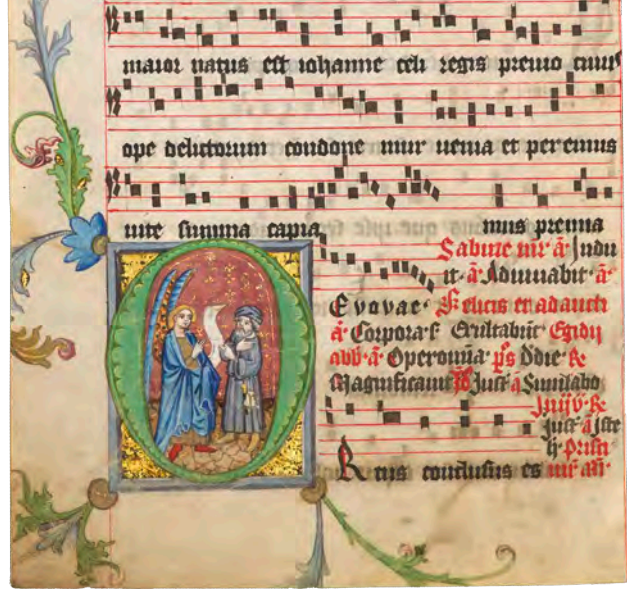 maior natus est iohanne celi regis premio cuius
ope delictorum condone mur uenia et perennis
uite summa capia mus premia
Sabine mr̄ ā Indu
it ā Adiuuabit ā
E v o v a e Felicis et adaucti
ā Corpora s̄ Exultabūt Egidij
abb ā ps̄ Dñe R̄
Magnificauit Just ā Similabo
Just ā Iste
Prisci
Ortus conclusus es mr̄ añ